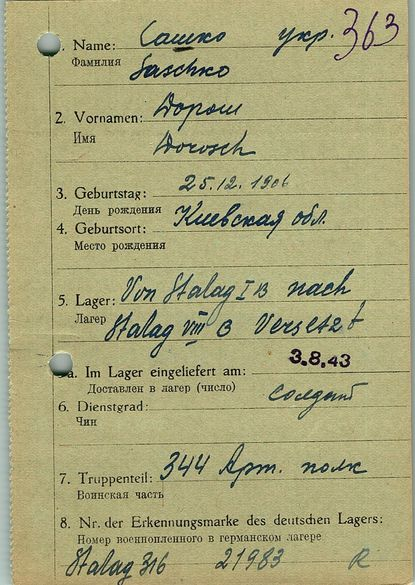 363
1. Name: Сашко укр.
Фамилия Saschko
2. Vornamen: Дорош
Имя Dorosch
3. Geburtstag: 25.12.1906
День рождения
4. Geburtsort: Киевская обл.
Место рождения
5. Lager: Von Stalag I B nach
Лагер Stalag VIII B Versetzt
a. Im Lager eingeliefert am: 3.8.43
Доставлен в лагер (число)
6. Dienstgrad: солдат
Чин
7. Truppenteil: 344 Арт. полк
Воинская часть
8. Nr. der Erkennungsmarke des deutschen Lagers:
Номер военнопленного в германском лагере
Stalag 316 21983 R